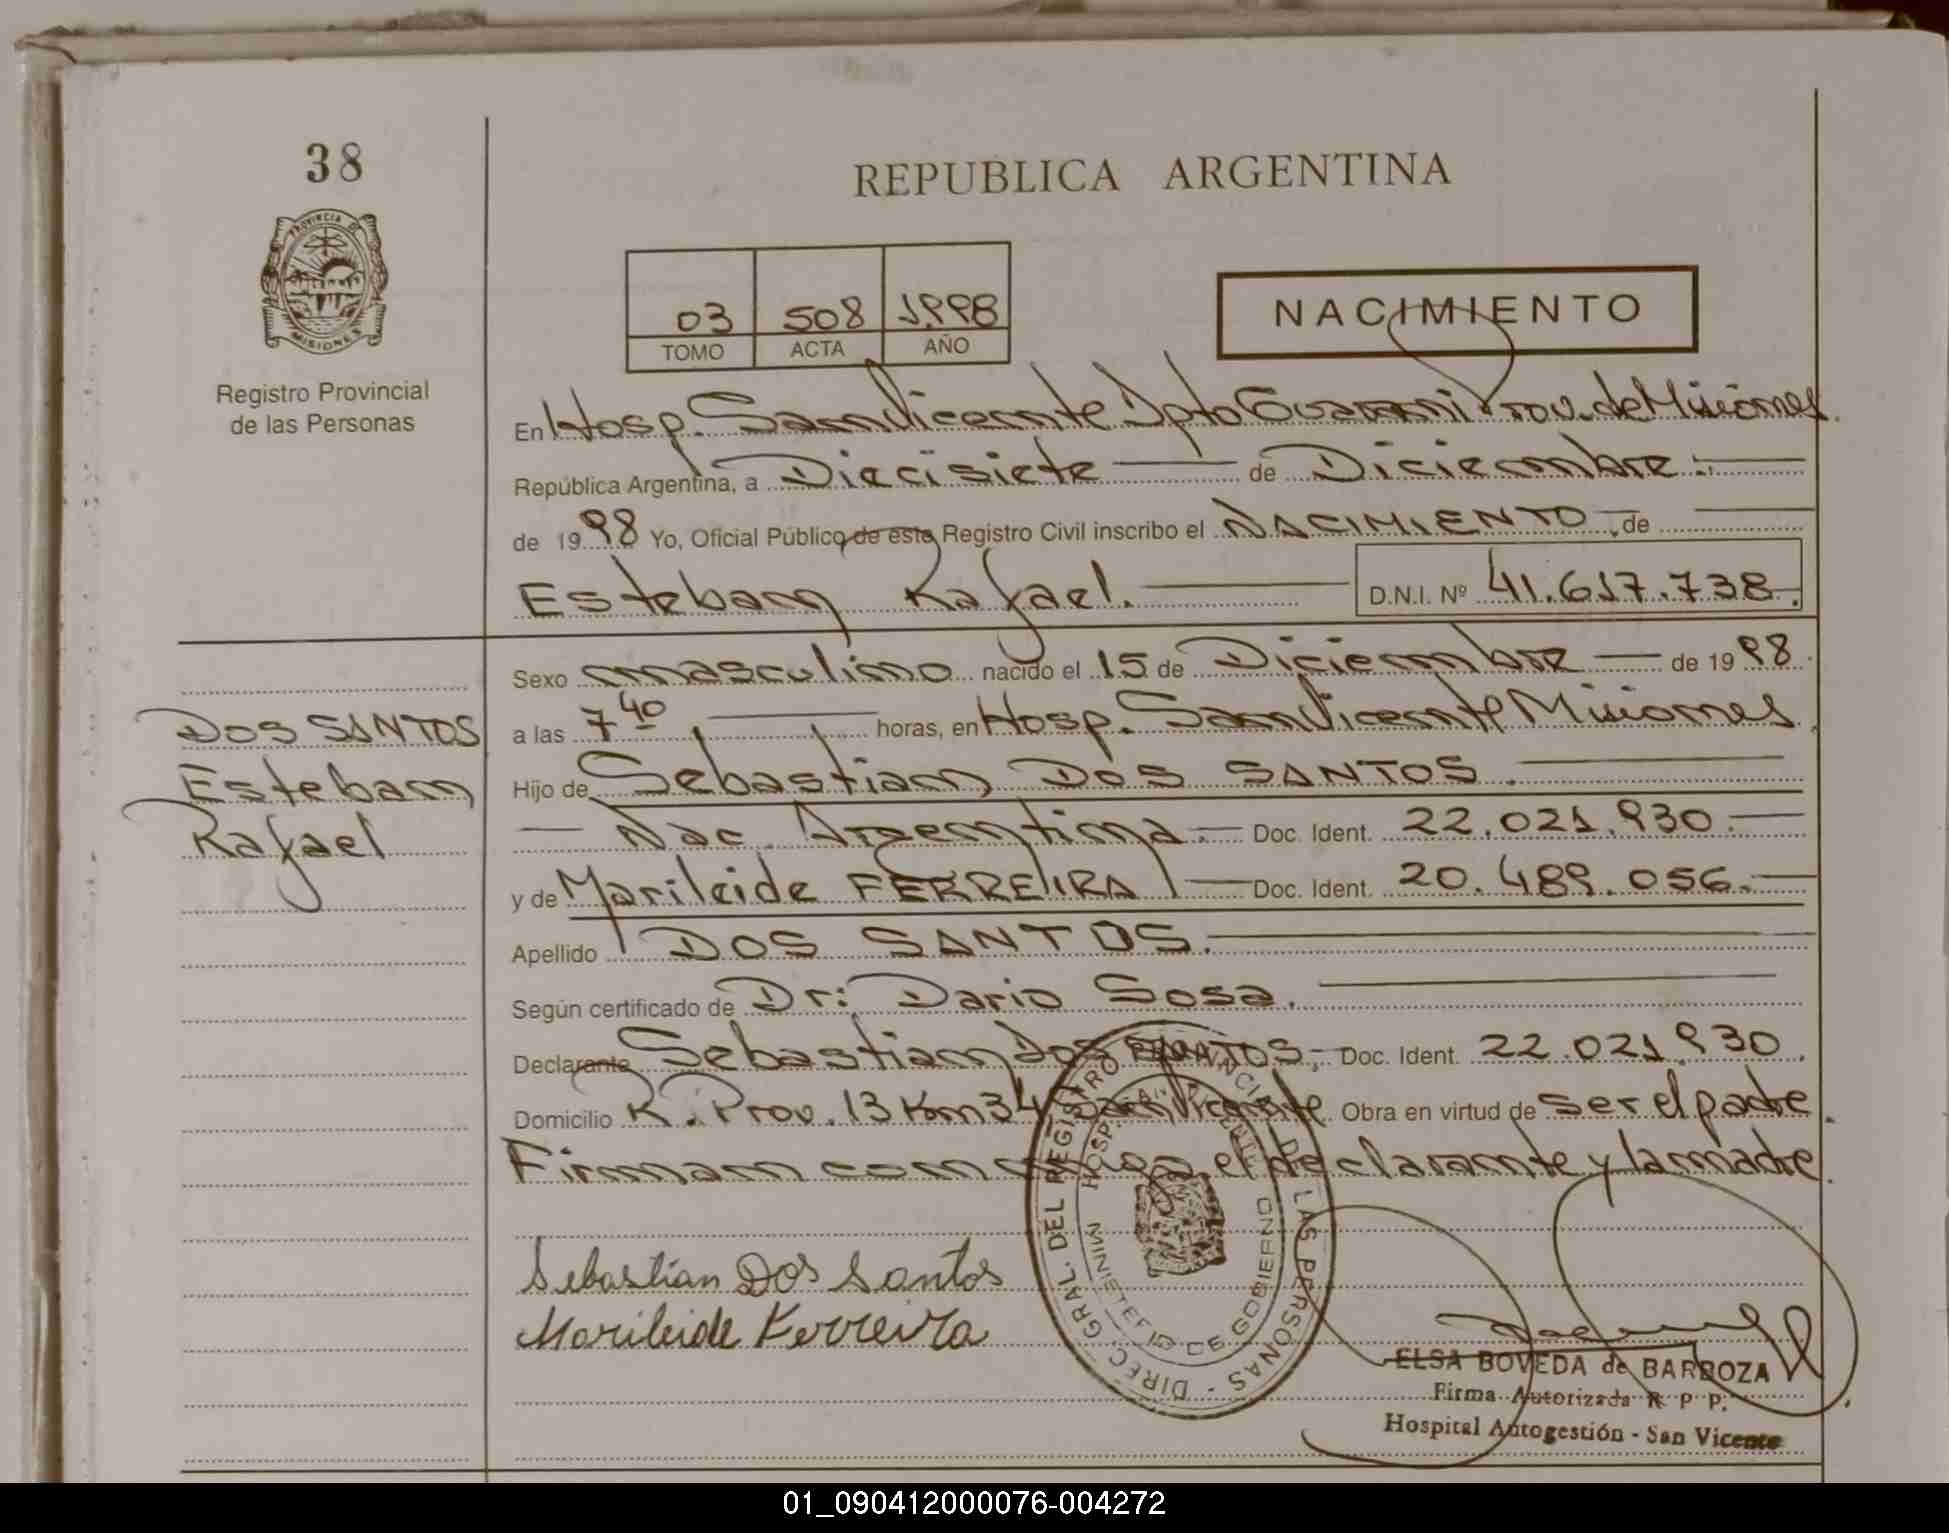 38
REPUBLICA ARGENTINA
PROVINCIA DE
MISIONES
Registro Provincial
de las Personas
03 508 1.998
TOMO ACTA AÑO
NACIMIENTO
En Hosp. San Vicente Dpto Guarani Prov. de Misiones.
República Argentina, a Diecisiete de Diciembre.
de 1998 Yo, Oficial Público de este Registro Civil inscribo el NACIMIENTO de
Esteban Rafael. D.N.I. Nº 41.617.738.
Sexo masculino nacido el 15 de Diciembre de 1998
a las 7 40 horas, en Hosp. San Vicente Misiones.
DOS SANTOS
Esteban
Rafael
Hijo de Sebastian DOS SANTOS.
Nac. Argentina. Doc. Ident. 22.021.930.
y de Marileide FERREIRA Doc. Ident. 20.489.056.
Apellido DOS SANTOS.
Según certificado de Dr: Dario Sosa.
Declarante Sebastian Dos SANTOS, Doc. Ident. 22.021.930.
Domicilio R. Prov. 13 Km 34 San Vicente Obra en virtud de ser el padre.
Firman conmigo el declarante y la madre.
Sebastian Dos Santos
Marileide Ferreira
DIREC. GRAL. DEL REGISTRO PROVINCIAL DE LAS PERSONAS
HOSP. SAN VICENTE
MINISTERIO DE GOBIERNO
ELSA BOVEDA de BARBOZA
Firma Autorizada R P P.
Hospital Autogestión - San Vicente
01_090412000076-004272